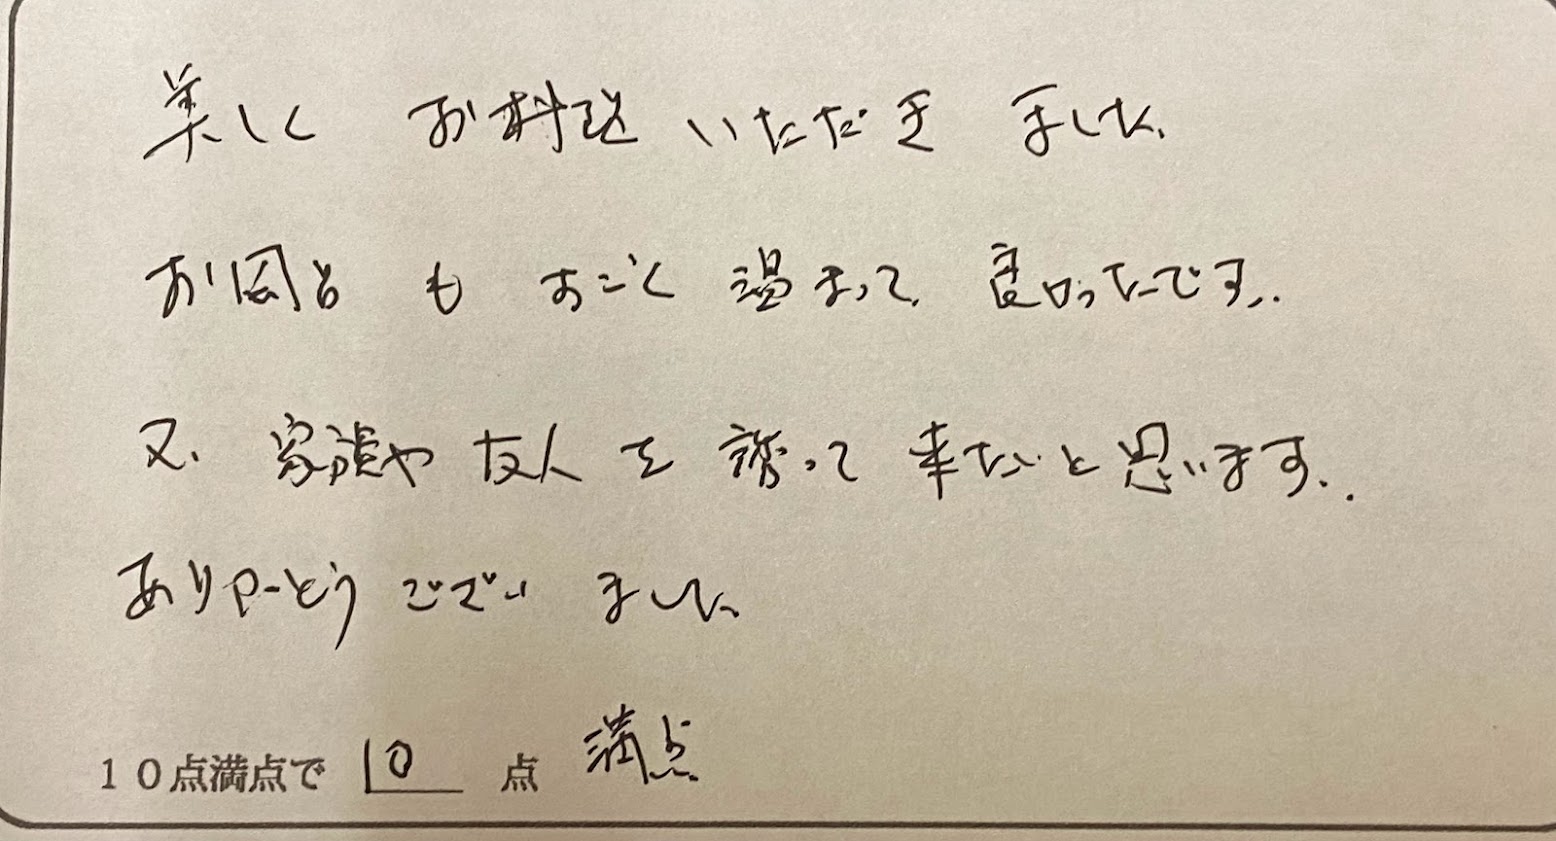 美しく お料理 いただき ました。
お風呂 も すごく 温まって、良かったです。
又、家族や 友人 を 誘って 来たいと思います。
ありがとう ござい ました。
10点満点で 10 点 満点